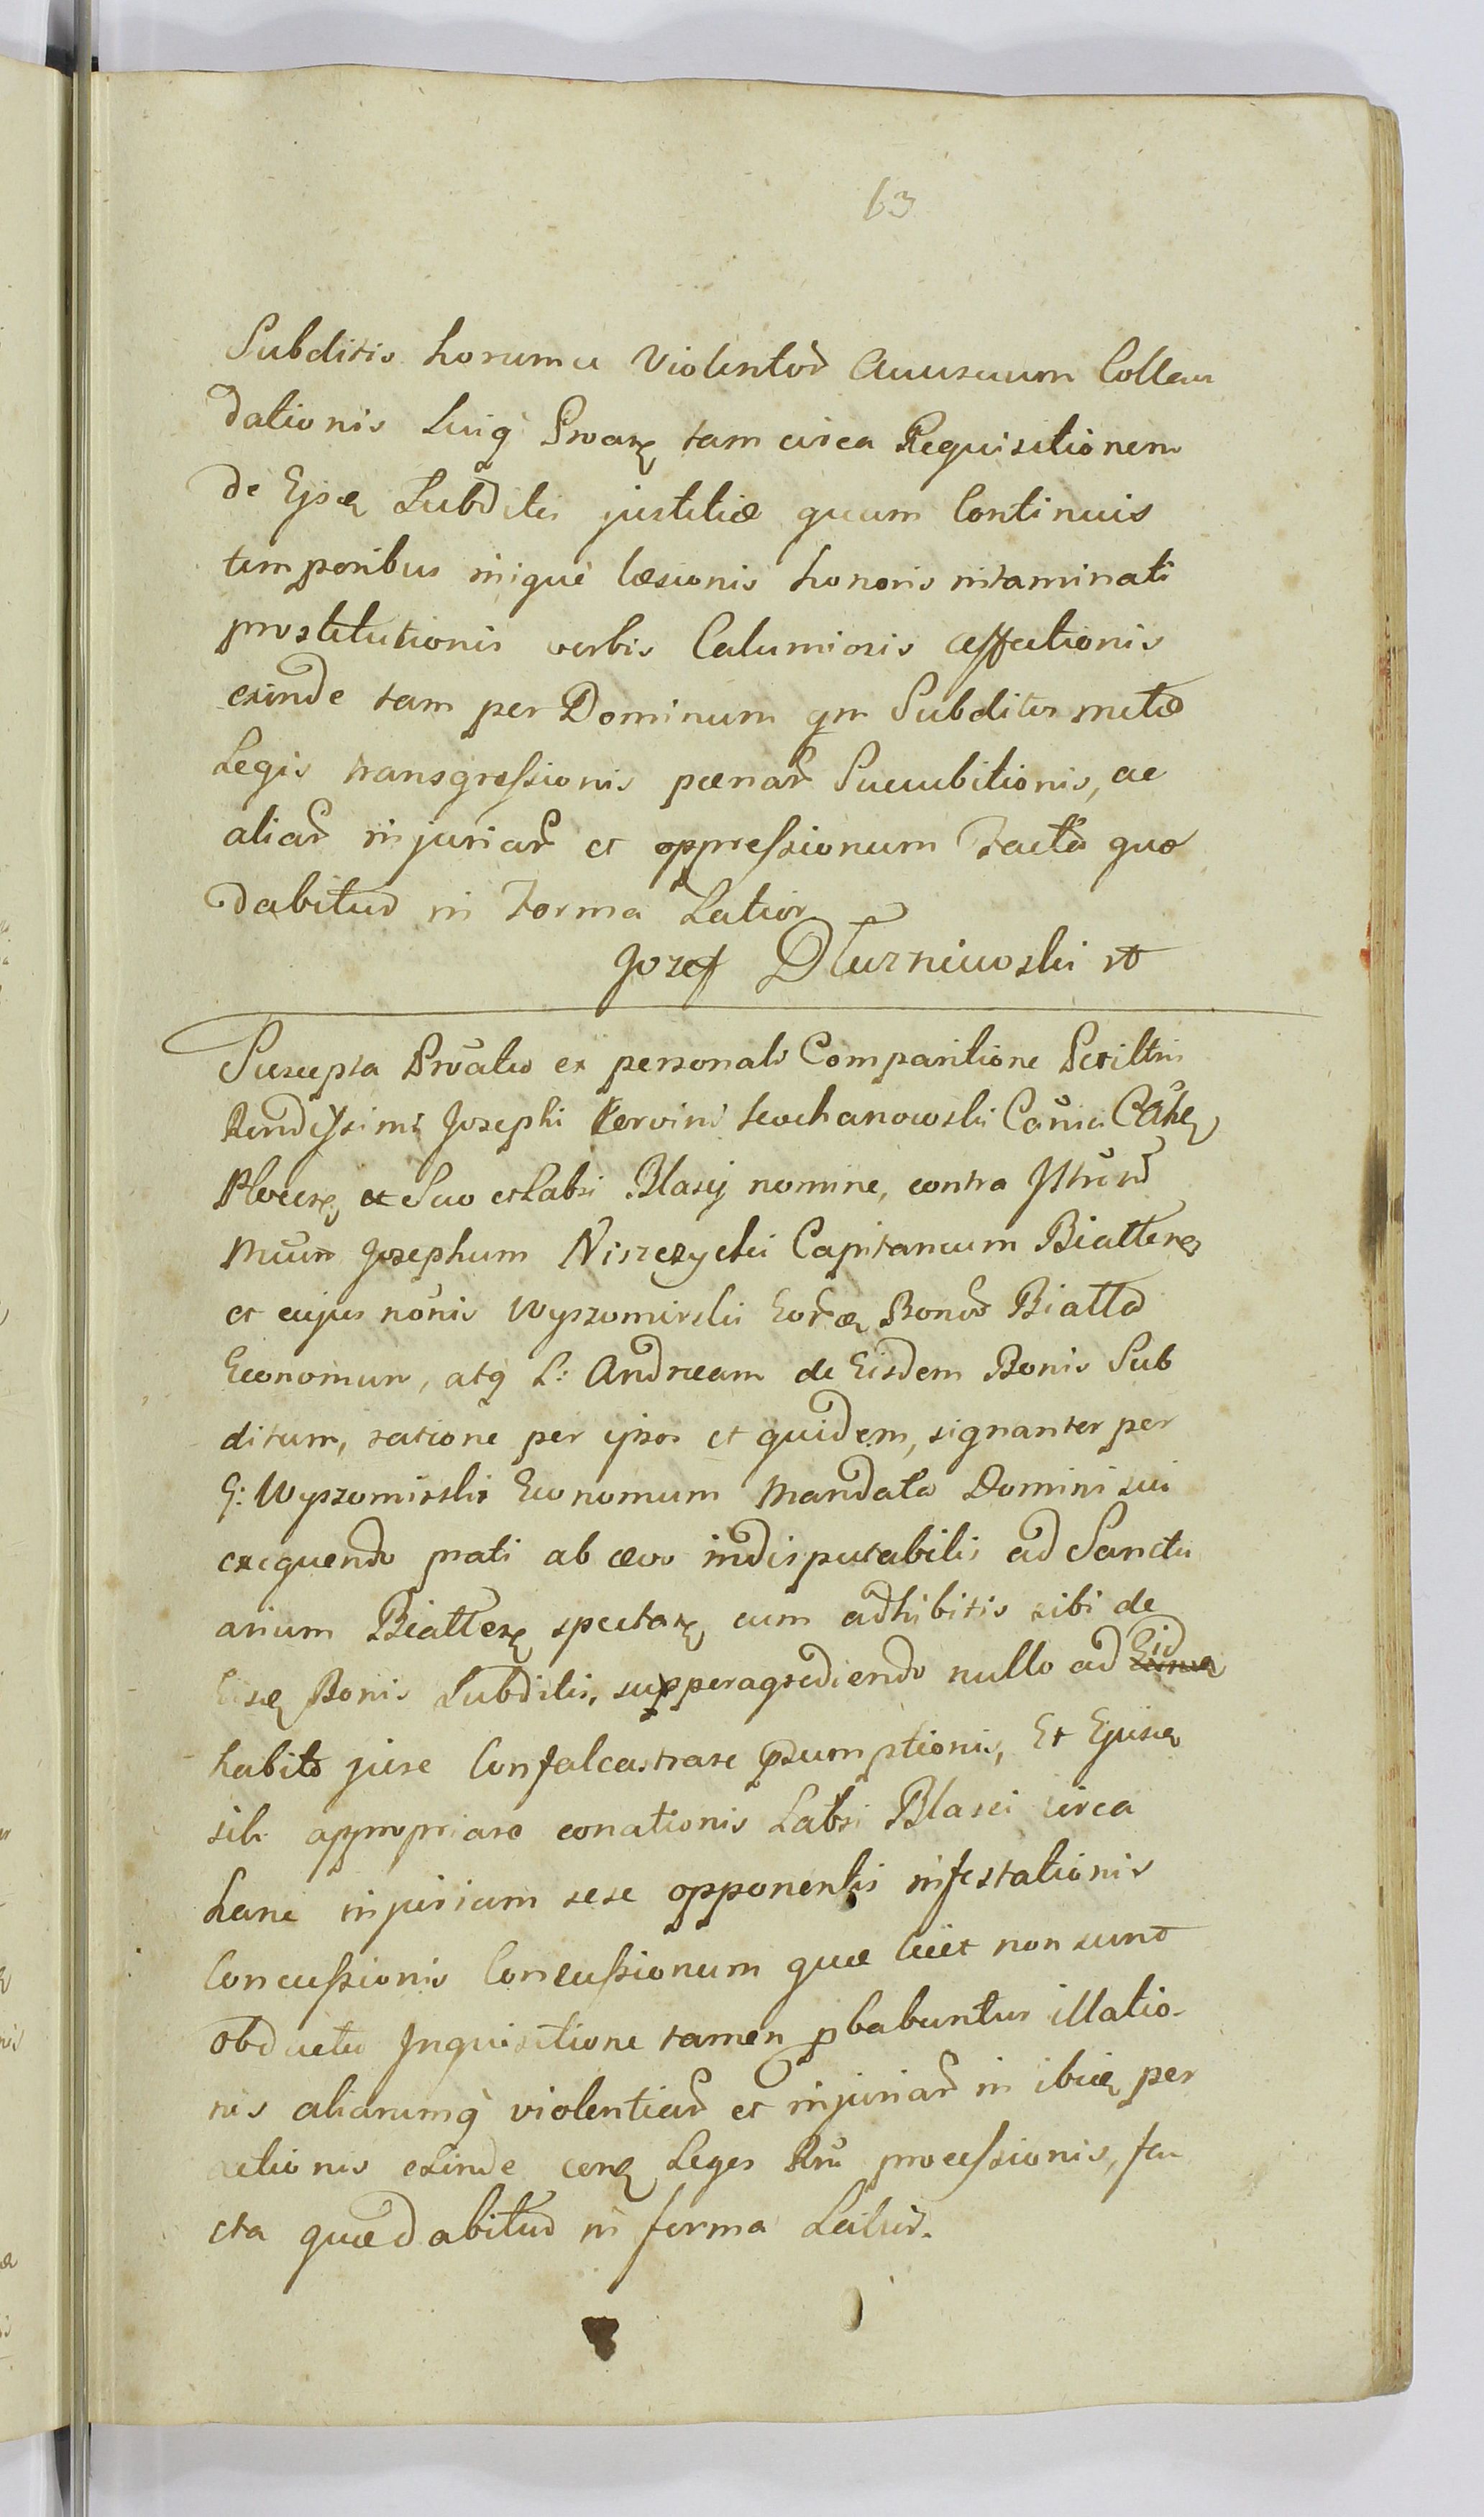 63
Subditis horumce Violentor Ausuum Collau
dationis huiq Prvarz tam circa Requisitionem
de Ejsde Subditis justitiæ quum Continuis
temporibus iniquè læsionis honoris intaminati
prostitutionis verbis Calumiosis affectionis
exinde tam per Dominum qm Subditos metæ
Legis transgressionis pænar Succubitionis, ac
aliar injuriar et oppressionum Facta quæ
dabitur in Forma Latior
Jozef Dłuzniewski
Suscepta Prvatio ex personali Comparitione Perilltris
Rendissimi Josephi Korvini Kochanowski Canici Cathe
Plocens, Suo et Labsi Blasij nomine, contra Illtrem
Mcum Josephum Niszczycki Capitaneum Biattens
et cujus nonis Wyszomirski Eorde Bonor Biatta
Economum, atq L: Andream de Eisdem Bonis Sub
ditum, ratione per ipsos et quidem, signanter per
G: Wyszomirski Economum Mandata Domini sui
exequendo prati ab ævo indisputabilis ad Sanctu
arium Biattens spectans, cum adhibitis sibi de
Eisde Bonis Subditis, supperagrediendo nullo ad Eid
habito jure Confalcastrare psumptionis, Et Ejusde
sibi appropriare conationis Labsi Blasei circa
hanc injuriam sese opponentis infestationis
Concussionis Concussionum quæ licet non sunt
obducta Inquisitione tamen pbabuntur illatio-
nis aliarumq violentiar et injuriar in ibide per
actionis exinde cenz Leges Rni processionis, fa
cta quæ dabitur in forma Latiori.